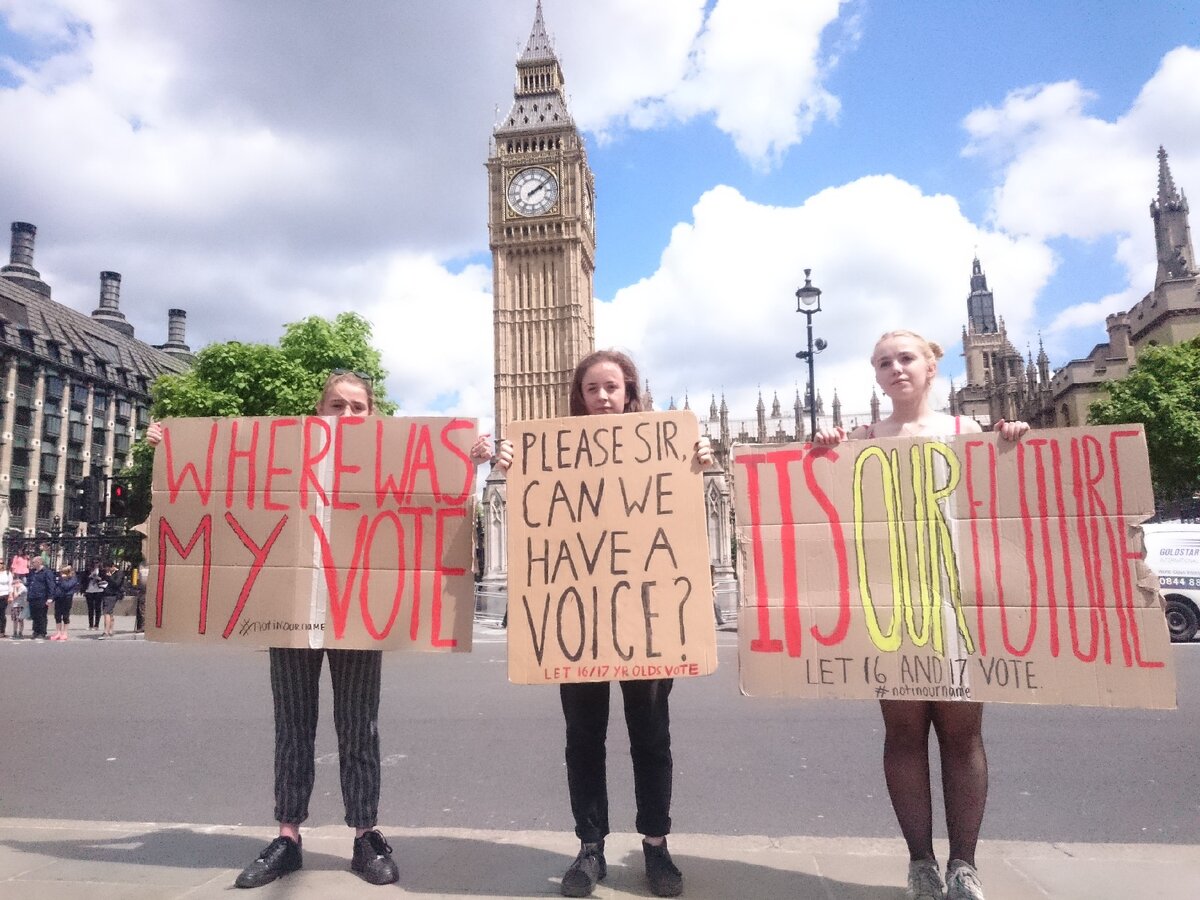 WHERE WAS
MY VOTE
#notinourname
PLEASE SIR,
CAN WE
HAVE A
VOICE?
LET 16/17 YR OLDS VOTE
ITS OUR FUTURE
LET 16 AND 17 VOTE.
#notinourname
GOLDSTAR
0844 88